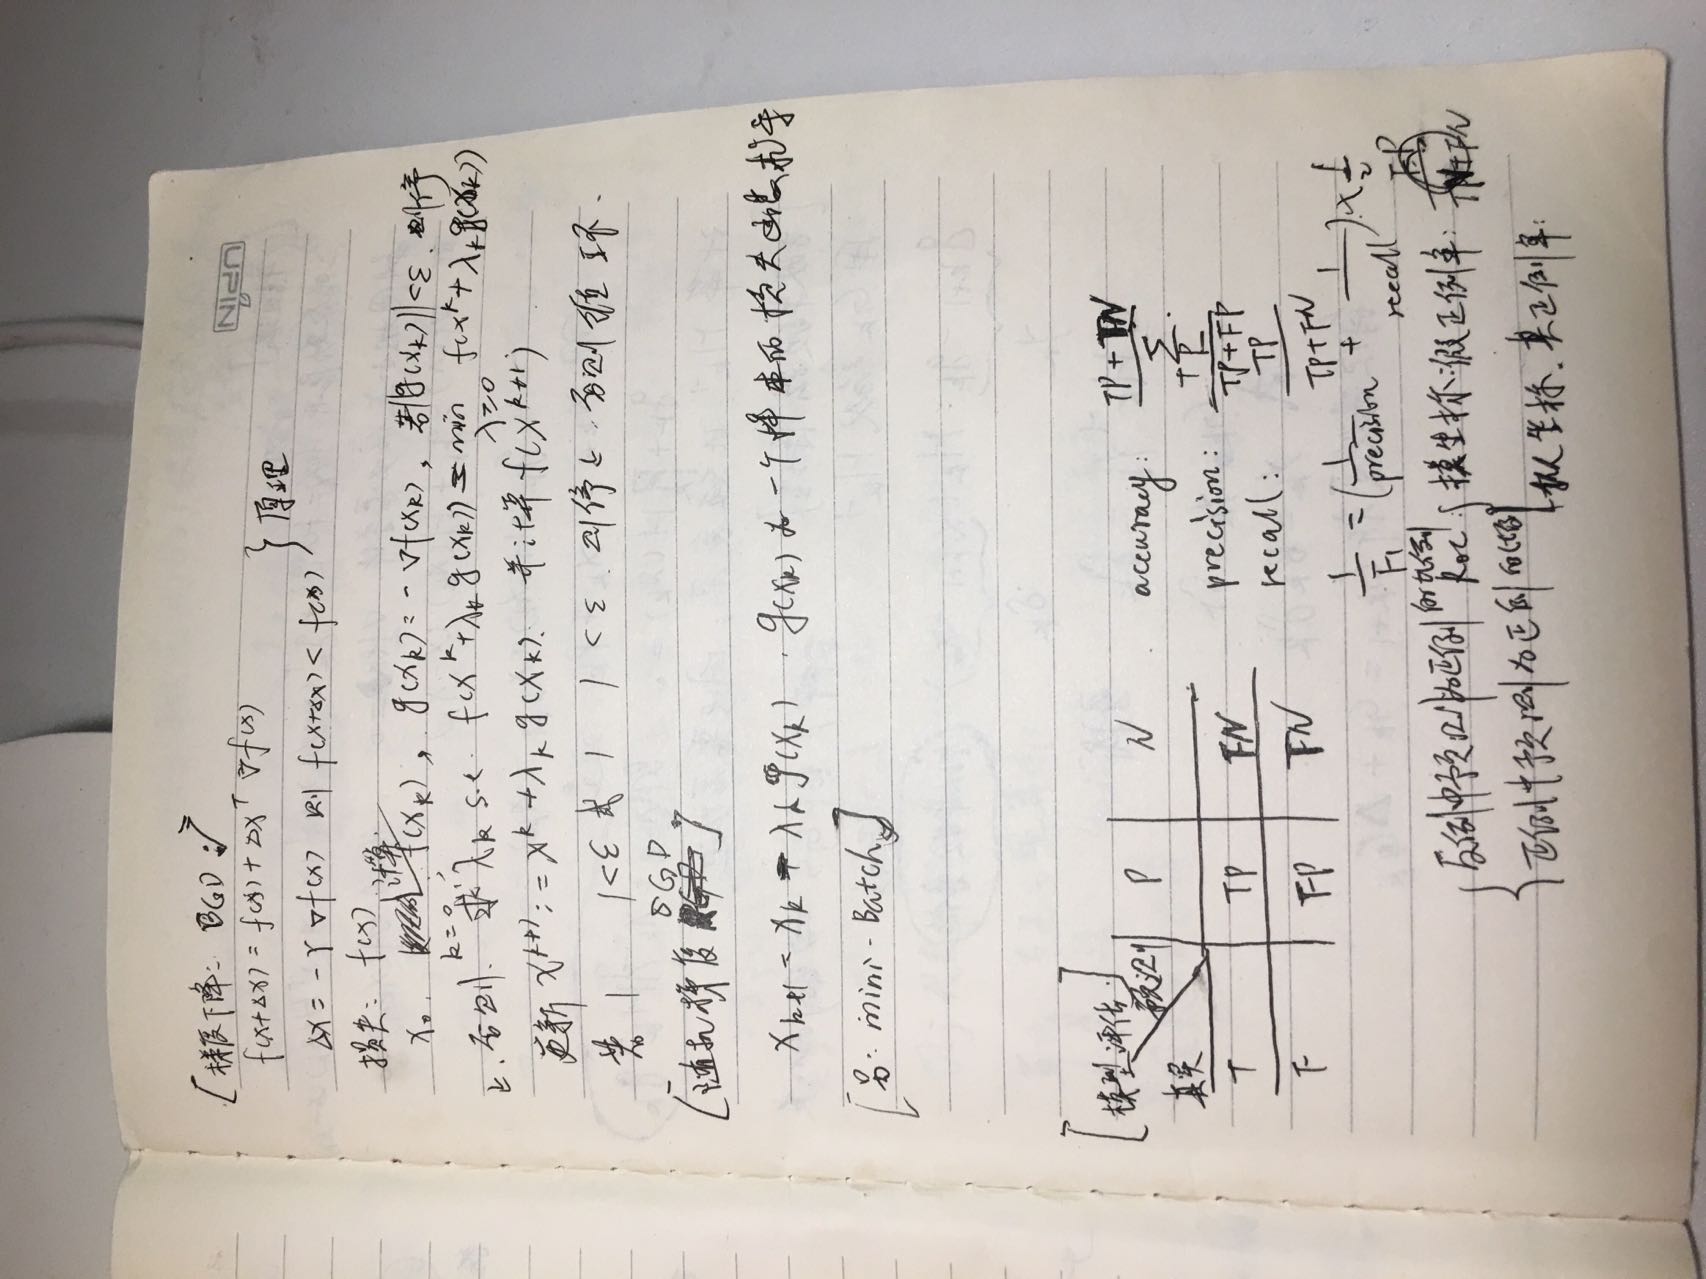 UPIN
[梯度下降: BGD:]
f(x+Δx) = f(x) + Δxᵀ ∇f(x)
Δx = -γ∇f(x) 则 f(x+Δx) < f(x) } 原理
损失: f(x)
x₀, k=0; 计算 f(x_k), g(x_k) = -∇f(x_k), 若||g(x_k)|| < ε, 则停
止, 否则, 求 λ_k s.t. f(x^k + λ_k g(x_k)) = min_{λ≥0} f(x^k + λ_k g(x_k))
更新 x^{k+1} := x^k + λ_k g(x_k). 并计算 f(x^{k+1})
若 | | < ε 或 | | < ε, 则停止, 否则循环.
[随机梯度 SGD]
x_{k+1} = x_k - λ_k g(x_k), g(x_k) 为一个样本的损失函数
[另: mini-Batch]
[模型评估]
预测 P N
真实
T TP FN
F FP TN
accuracy: (TP+TN)/Σ
precision: TP/(TP+FP)
recall: TP/(TP+FN)
1/F₁ = (1/precision + 1/recall) × 1/2
{ 反例中预测为正例的比例 ROC { 横坐标: 假正例率: FP/(TN+FN)
正例中预测为正例的比例 纵坐标. 真正例率: